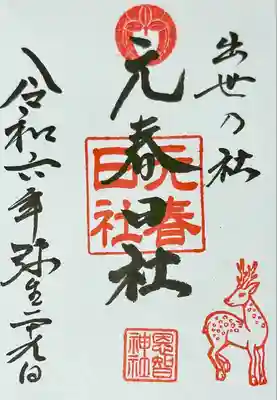 出世乃社
元春日社
元春
日社
恩智
神社
令和六年弥生二十九日